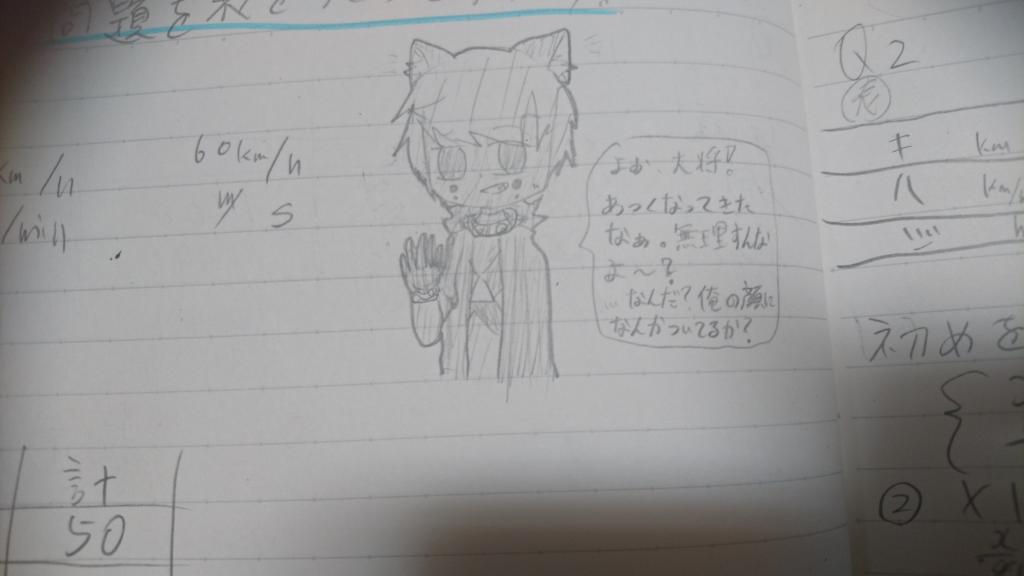 問題を
km/h
60km/h
/min
m/s
よぉ、大将!
あつくなってきた
なぁ。無理すんな
よ〜?
…なんだ?俺の顔に
なんかついてるか?
計
50
Q2
表
キ km
ハ km/
ジ h
初めを
② x1
x